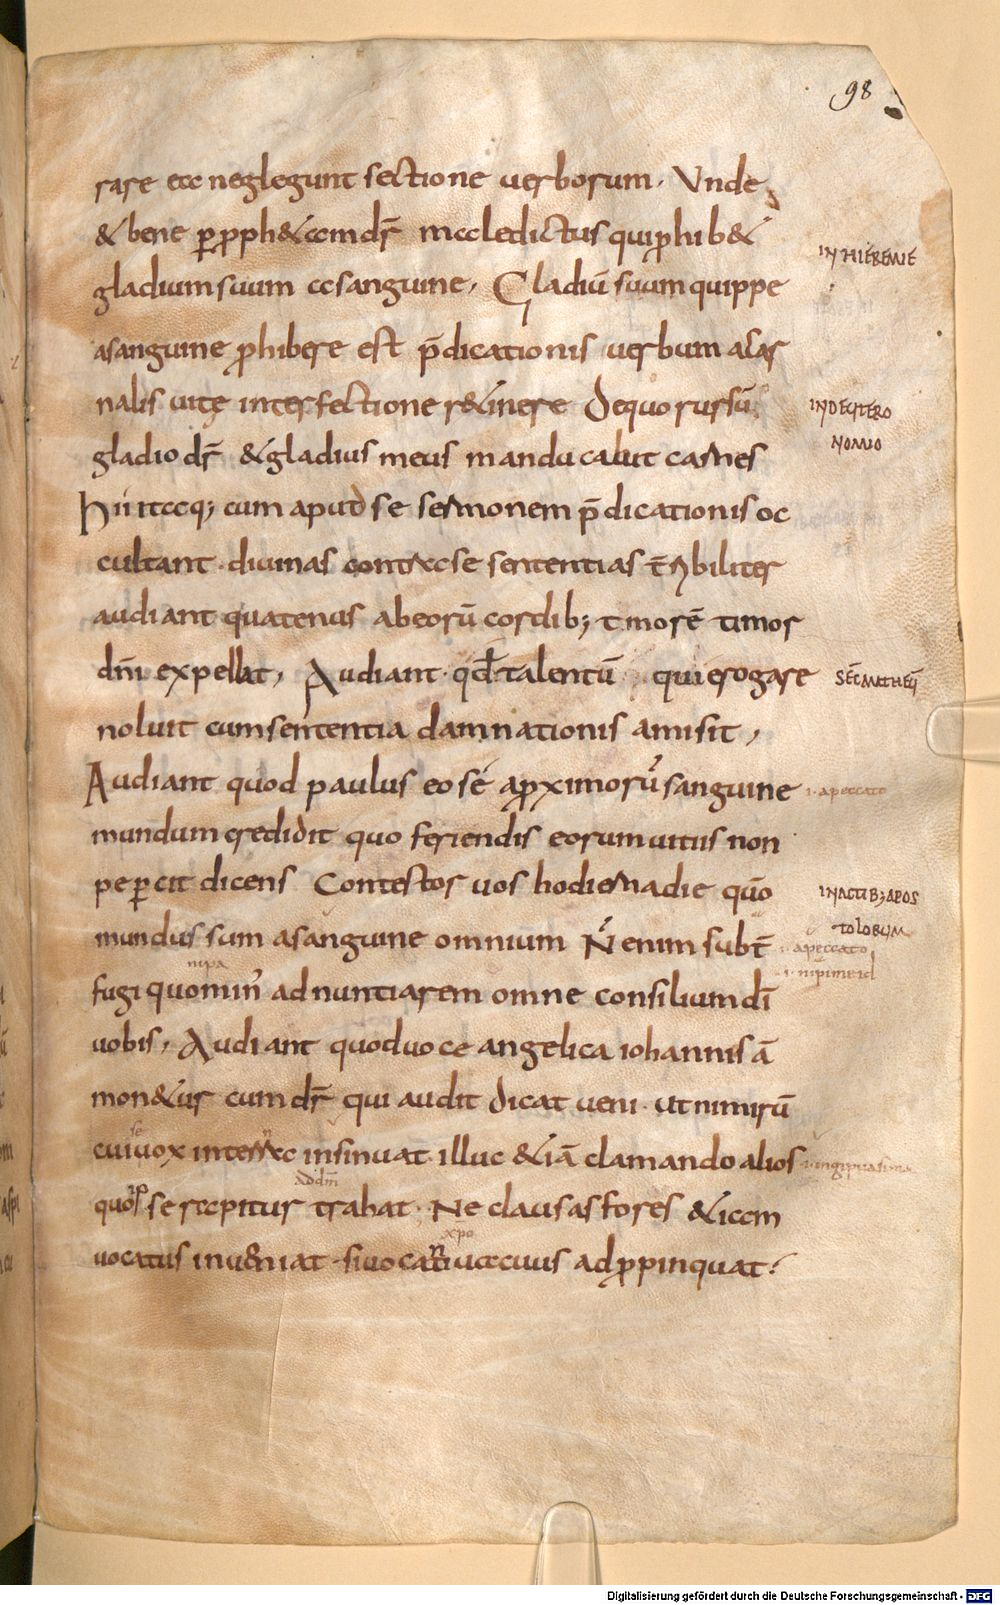 98
rare ea neglegunt sectione uerborum. Vnde
& bene p̱ ꝓph&am dr̄ maledictus qui ꝓhib&
gladium suum a sanguine, Gladiū suum quippe
a sanguine ꝓhibere est p̄dicationis uerbum a car
nalis uitę interfectione r&inere De quo rursū
gladio dr̄ & gladius meus manducabit carnes
Hii itaq; cum apud se sermonem p̄dicationis oc
cultant. diuinas contra se sententias t̄ribiliter
audiant quatenus ab eorū cordib; timorē timor
dn̄i expellat, Audiant. qđ talentū qui erogare
noluit cum sententia damnationis amisit,
Audiant quod paulus eo se a ꝓximorū sanguine
mundum credidit quo feriendis eorum uitiis non
pep̱cit dicens Contestor uos hodierna die quō
mundus sum a sanguine omnium N̄ enim subt̄
fugi quomin' adnuntiarem omne consilium dī
uobis, Audiant quod uoce angelica iohannis ā
mon&ur cum dr̄ qui audit dicat ueni. ut nimirū
cui uox interna insinuat. illuc &iā clamando alios
quo se rapitur trahat. Ne clausas fores &iam
uocatus inueniat. si uocanti uacuus adꝓpinquat.
IN HIEREMIE
IN DEUTERO
NOMIO
SEC̄ MATHEŪ
.i. a peccato
IN ACTIB; APOS
TOLORUM
.i. a peccato
ad dm̄
xp̄o
Digitalisierung gefördert durch die Deutsche Forschungsgemeinschaft - DFG